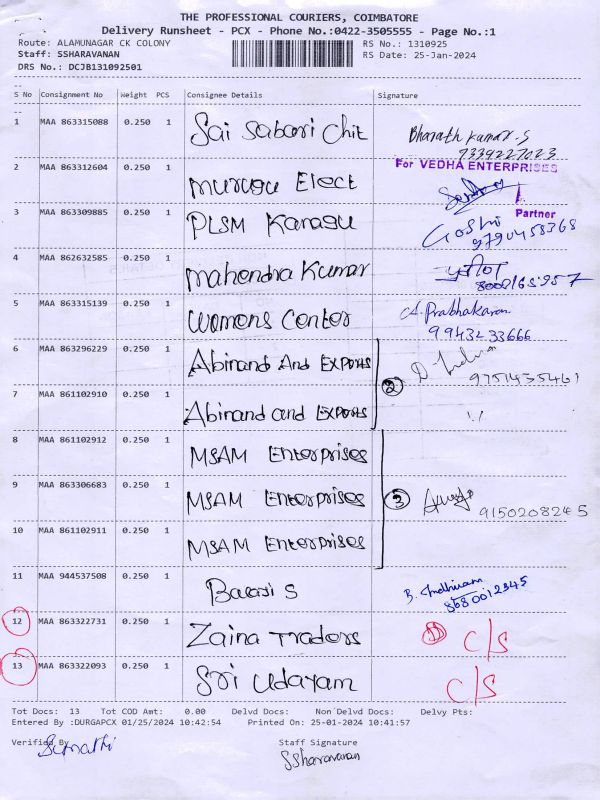 THE PROFESSIONAL COURIERS, COIMBATORE
Delivery Runsheet - PCX - Phone No.:0422-3505555 - Page No.:1
Route: ALAMUNAGAR CK COLONY RS No.: 1310925
Staff: SSHARAVANAN RS Date: 25-Jan-2024
DRS No.: DCJB131092501
S No Consignment No Weight PCS Consignee Details Signature
1 MAA 863315088 0.250 1 Sai Sabari Chit Bharath Kumar.S
9339227023
For VEDHA ENTERPRISES
2 MAA 863312604 0.250 1 Murugu Elect
Partner
3 MAA 863309885 0.250 1 PLSM Karagu Goshi
9790458368
4 MAA 862632585 0.250 1 Mahendra Kumar
5 MAA 863315139 0.250 1 Womens Center A. Prabhakaran
9943233666
6 MAA 863296229 0.250 1 Abinand And Exports
2 9751435461
7 MAA 861102910 0.250 1 Abinand and Exports
8 MAA 861102912 0.250 1 MSAM Enterprises
9 MAA 863306683 0.250 1 MSAM Enterprises 3 9150208245
10 MAA 861102911 0.250 1 MSAM Enterprises
11 MAA 944537508 0.250 1 Balaji S
8680012345
12 MAA 863322731 0.250 1 Zaina Traders C/S
13 MAA 863322093 0.250 1 Sri Udayam C/S
Tot Docs: 13 Tot COD Amt: 0.00 Delvd Docs: Non Delvd Docs: Delvy Pts:
Entered By :DURGAPCX 01/25/2024 10:42:54 Printed On: 25-01-2024 10:41:57
Verified By Staff Signature
SSharavanan